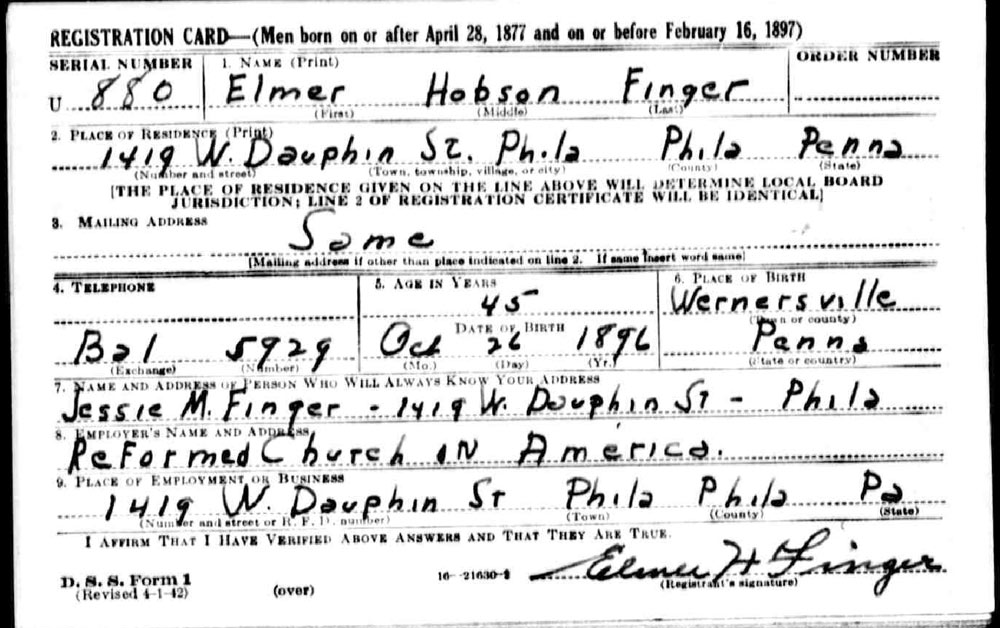 REGISTRATION CARD—(Men born on or after April 28, 1877 and on or before February 16, 1897)
SERIAL NUMBER 1. NAME (Print) ORDER NUMBER
U 880 Elmer Hobson Finger
(First) (Middle) (Last)
2. PLACE OF RESIDENCE (Print)
1419 W. Dauphin St. Phila Phila Penna
(Number and street) (Town, township, village, or city) (County) (State)
[THE PLACE OF RESIDENCE GIVEN ON THE LINE ABOVE WILL DETERMINE LOCAL BOARD
JURISDICTION; LINE 2 OF REGISTRATION CERTIFICATE WILL BE IDENTICAL]
3. MAILING ADDRESS
Same
[Mailing address if other than place indicated on line 2. If same insert word same]
4. TELEPHONE 5. AGE IN YEARS 6. PLACE OF BIRTH
45 Wernersville
DATE OF BIRTH (Town or county)
Bal 5929 Oct 26 1896 Penna
(Exchange) (Number) (Mo.) (Day) (Yr.) (State or country)
7. NAME AND ADDRESS OF PERSON WHO WILL ALWAYS KNOW YOUR ADDRESS
Jessie M. Finger - 1419 W. Dauphin St - Phila
8. EMPLOYER'S NAME AND ADDRESS
Reformed Church IN America.
9. PLACE OF EMPLOYMENT OR BUSINESS
1419 W. Dauphin St Phila Phila Pa
(Number and street or R. F. D. number) (Town) (County) (State)
I AFFIRM THAT I HAVE VERIFIED ABOVE ANSWERS AND THAT THEY ARE TRUE.
D. S. S. Form 1 16—21630-2 Elmer H Finger
(Revised 4-1-42) (over) (Registrant's signature)